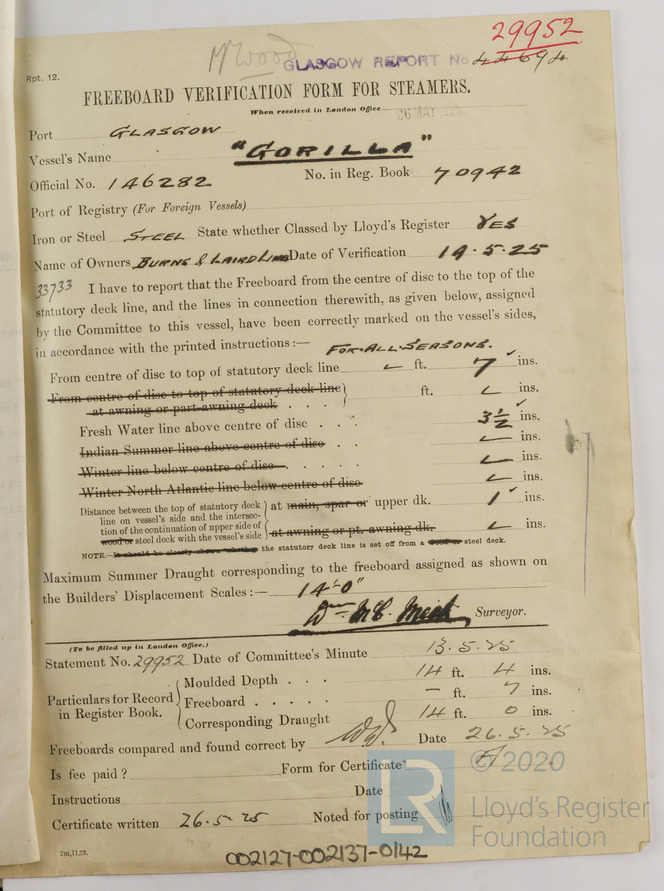 29952
Rpt. 12.
GLASGOW REPORT No 44694
FREEBOARD VERIFICATION FORM FOR STEAMERS.
When received in London Office 26 MAY
Port GLASGOW
Vessel's Name "GORILLA"
Official No. 146282 No. in Reg. Book 70942
Port of Registry (For Foreign Vessels)
Iron or Steel STEEL State whether Classed by Lloyd's Register YES
Name of Owners BURNS & LAIRD LINES Date of Verification 19.5.25
33733 I have to report that the Freeboard from the centre of disc to the top of the
statutory deck line, and the lines in connection therewith, as given below, assigned
by the Committee to this vessel, have been correctly marked on the vessel's sides,
in accordance with the printed instructions:— FOR ALL SEASONS.
From centre of disc to top of statutory deck line ft. 7 ins.
From centre of disc to top of statutory deck line
at awning or part awning deck . . . ft. ins.
Fresh Water line above centre of disc . . . 3½ ins.
Indian Summer line above centre of disc . . ins.
Winter line below centre of disc . . . . . ins.
Winter North Atlantic line below centre of disc ins.
Distance between the top of statutory deck
line on vessel's side and the intersec-
tion of the continuation of upper side of
wood or steel deck with the vessel's side
at main, spar or upper dk. 1 ins.
at awning or pt. awning dk. ins.
NOTE.—It should be clearly shown whether the statutory deck line is set off from a wood or steel deck.
Maximum Summer Draught corresponding to the freeboard assigned as shown on
the Builders' Displacement Scales:— 14'-0"
Surveyor.
(To be filled up in London Office.)
Statement No. 29952 Date of Committee's Minute 13.5.25
Particulars for Record
in Register Book.
Moulded Depth . . . 14 ft. 4 ins.
Freeboard . . . . . – ft. 7 ins.
Corresponding Draught 14 ft. 0 ins.
Freeboards compared and found correct by Date 26.5.25
Is fee paid? Form for Certificate A
Instructions Date
Certificate written 26.5.25 Noted for posting
2m,11,23.
002127-002137-0142
LR
© 2020
Lloyd's Register
Foundation